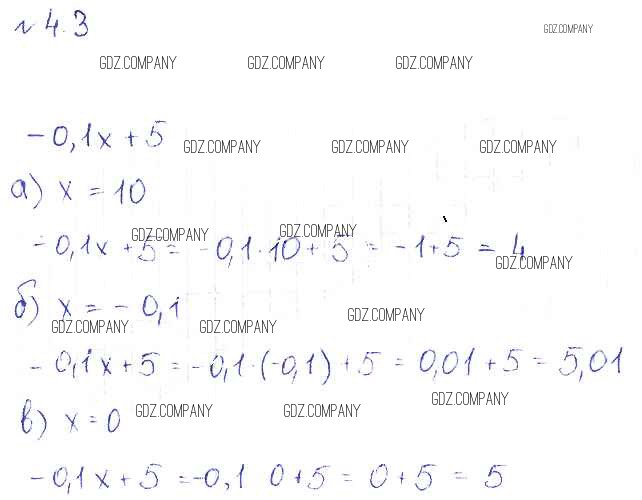 № 4.3
GDZ.COMPANY
GDZ.COMPANY GDZ.COMPANY GDZ.COMPANY
-0,1x + 5
GDZ.COMPANY GDZ.COMPANY GDZ.COMPANY
а) x = 10
GDZ.COMPANY GDZ.COMPANY
-0,1x + 5 = -0,1·10 + 5 = -1+5 = 4
GDZ.COMPANY
б) x = -0,1
GDZ.COMPANY GDZ.COMPANY GDZ.COMPANY
-0,1x + 5 = -0,1·(-0,1) + 5 = 0,01 + 5 = 5,01
GDZ.COMPANY GDZ.COMPANY GDZ.COMPANY
в) x = 0
-0,1x + 5 = -0,1 0 + 5 = 0 + 5 = 5